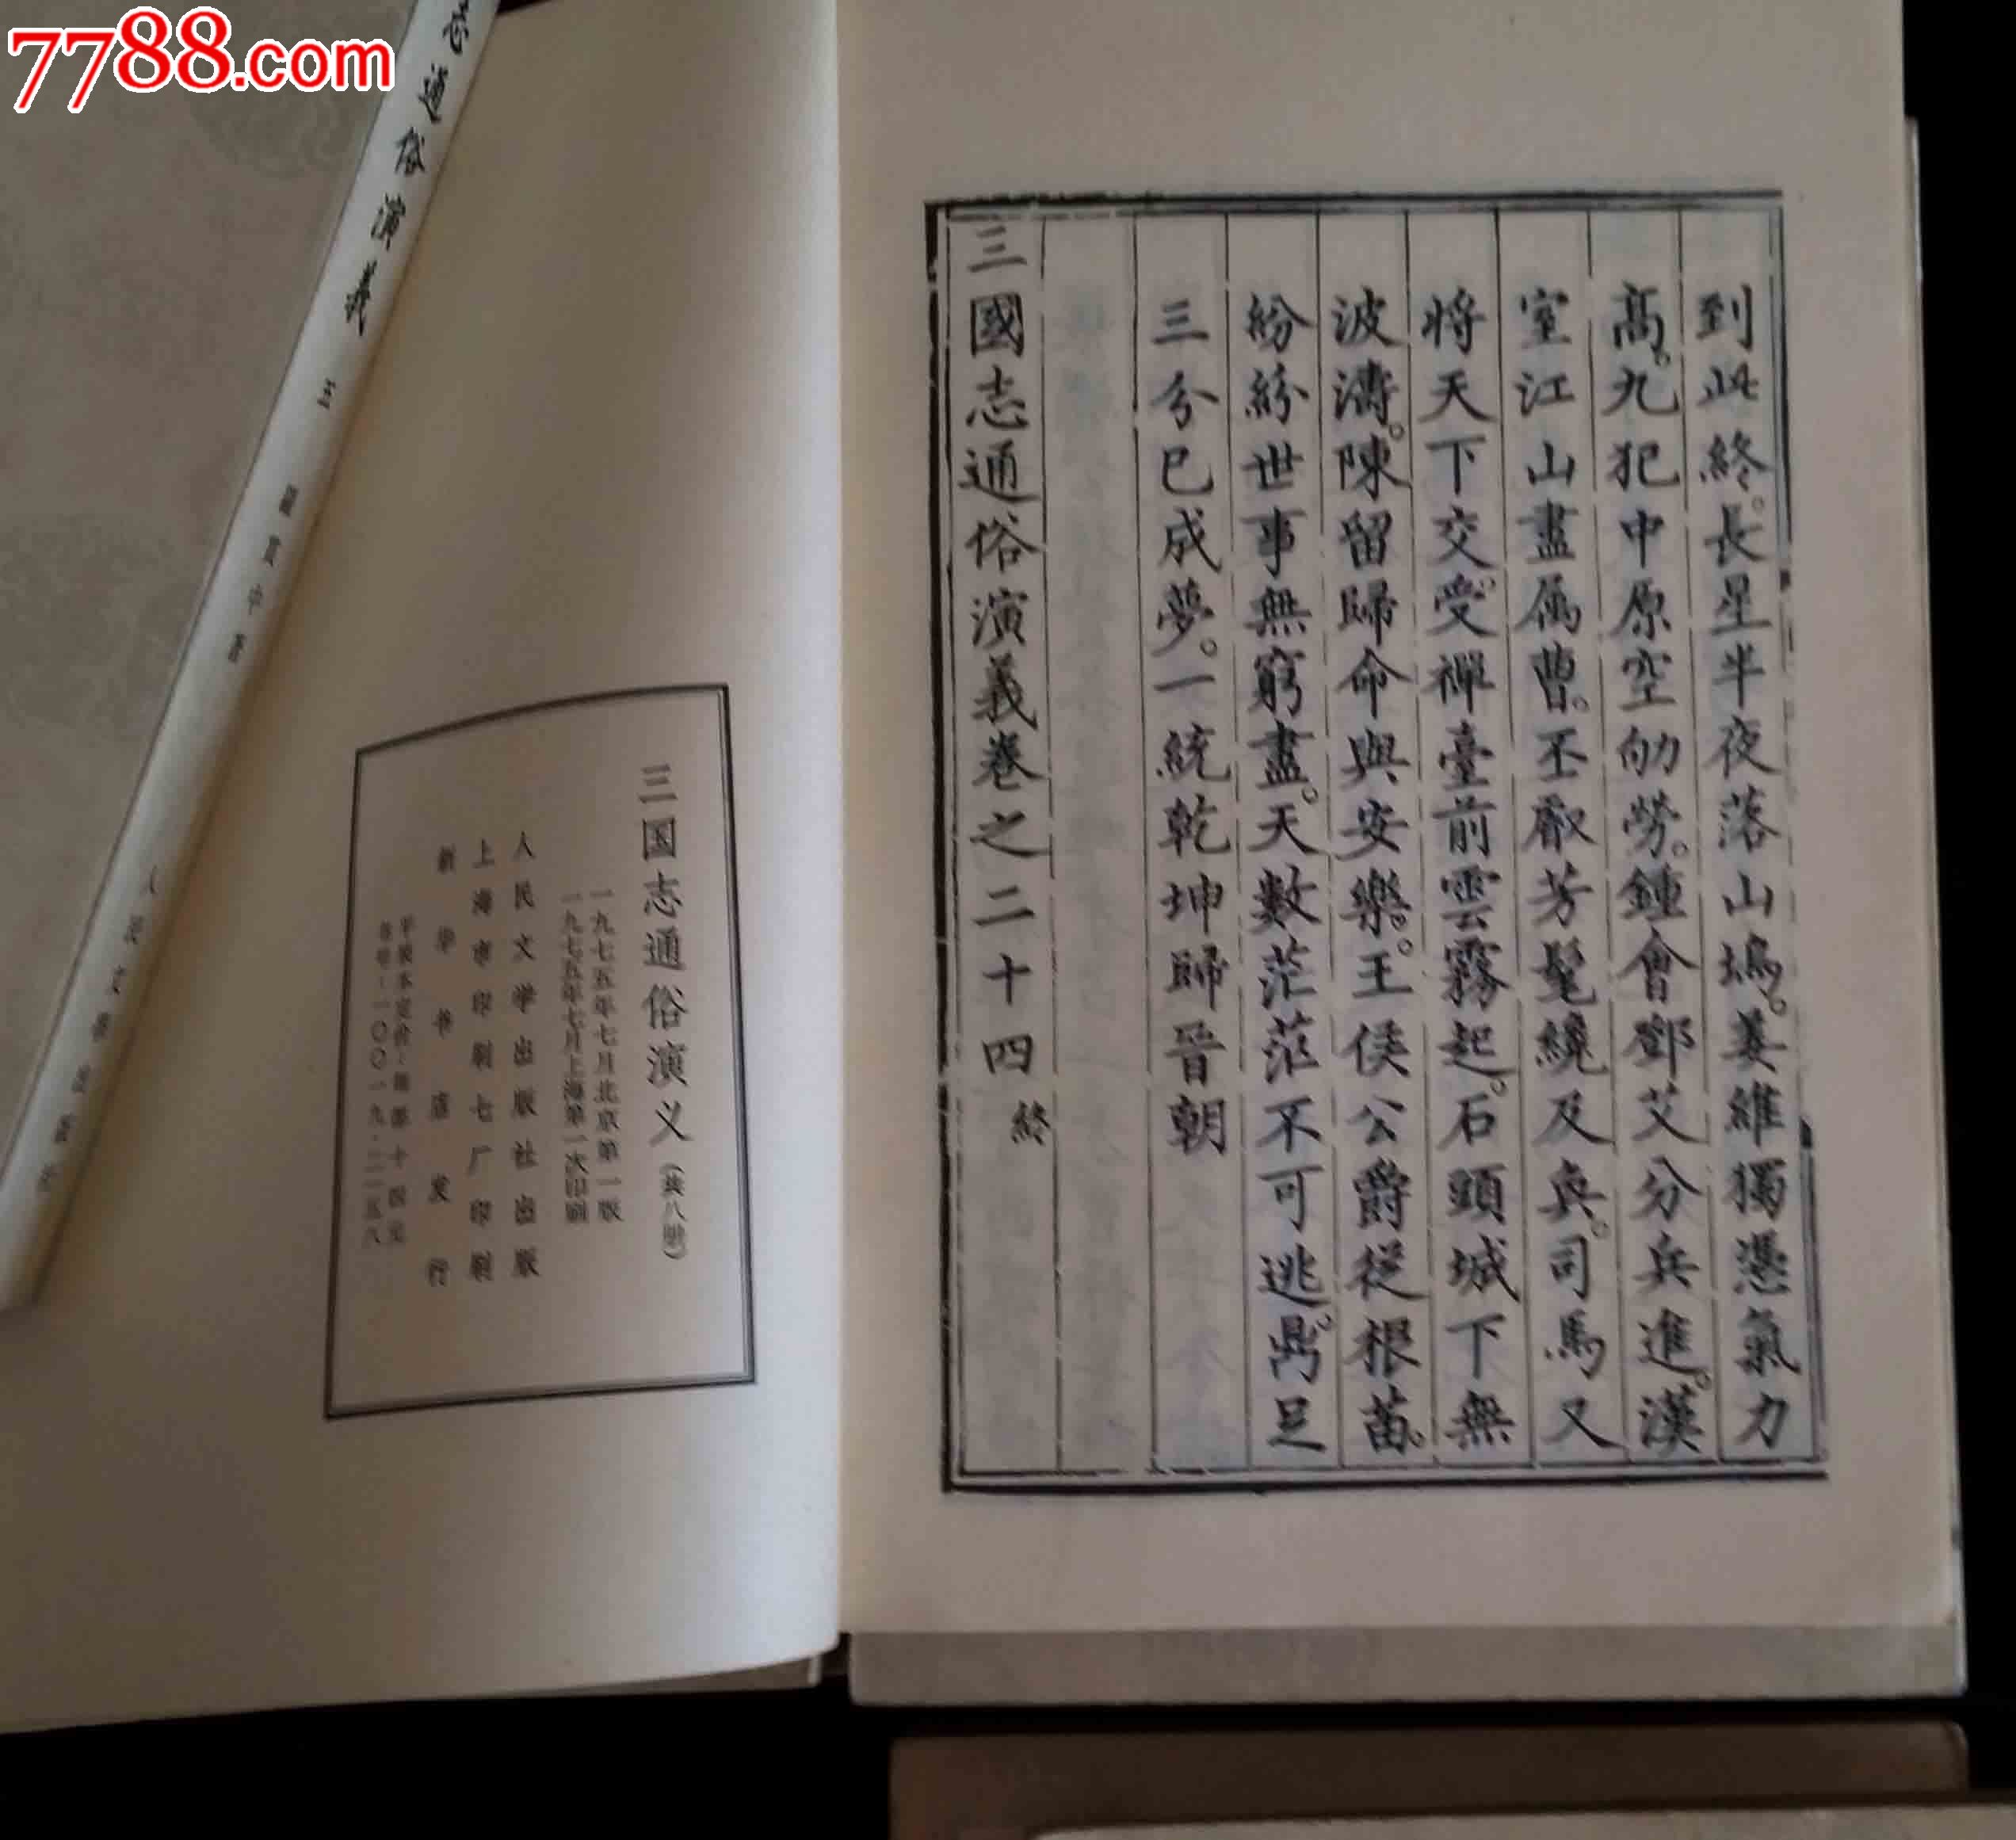 7788.com
到此終。長星半夜落山塢。姜維獨憑氣力
高。九犯中原空劬勞。鍾會鄧艾分兵進。漢
室江山盡属曹。丕叡芳髦纔及奐。司馬又
將天下交。受禪臺前雲霧起。石頭城下無
波濤。陳留歸命與安樂。王侯公爵從根苗。
紛紛世事無窮盡。天數茫茫不可逃。鼎足
三分已成夢。一統乾坤歸晉朝
三國志通俗演義卷之二十四 終
三国志通俗演义(共八册)
一九七五年七月北京第一版
一九七五年七月上海第一次印刷
人民文学出版社出版
上海市印刷七厂印刷
新华书店发行
平装本定价:每部十四元
书号:一〇〇一九·二二五八
通俗演義 三 羅貫中著 人民文學出版社